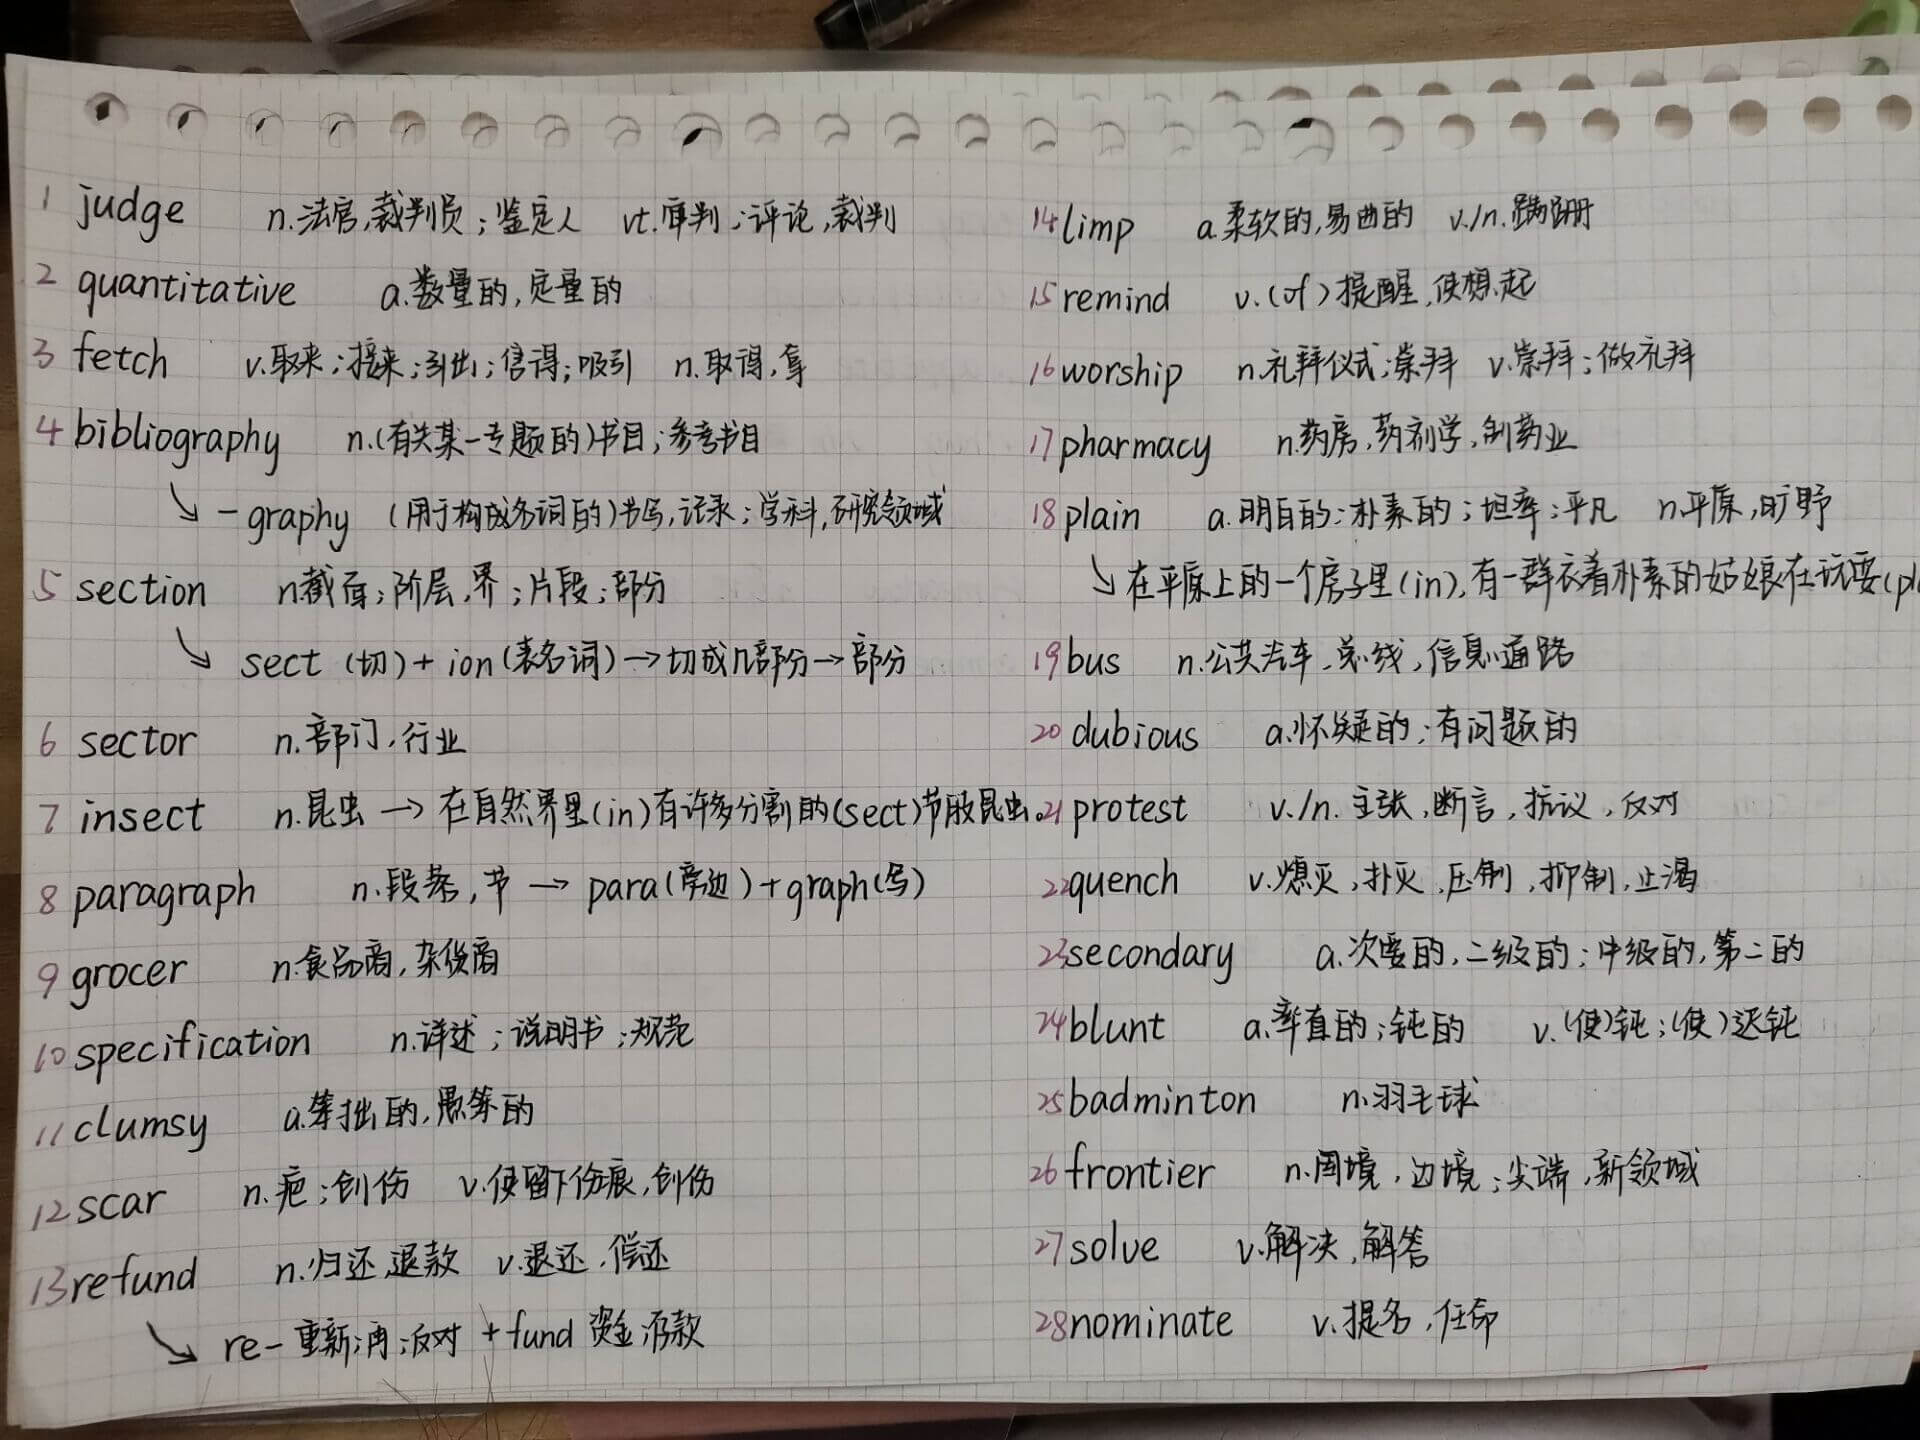 1 judge n.法官,裁判员;鉴定人 vt.审判;评论,裁判
2 quantitative a.数量的,定量的
3 fetch v.取来;接来;引出;售得;吸引 n.取得,拿
4 bibliography n.(有关某一专题的)书目;参考书目
-graphy (用于构成名词的)书写,记录;学科,研究领域
5 section n截面;阶层,界;片段;部分
sect (切)+ion(表名词)→切成几部分→部分
6 sector n.部门,行业
7 insect n.昆虫 → 在自然界里(in)有许多分割的(sect)节肢昆虫。
8 paragraph n.段落,节 → para(旁边)+graph(写)
9 grocer n.食品商,杂货商
10 specification n.详述;说明书;规范
11 clumsy a.笨拙的,愚笨的
12 scar n.疤;创伤 v.使留下伤痕,创伤
13 refund n.归还,退款 v.退还,偿还
re-重新;再;反对 +fund 资金;存款
14 limp a.柔软的,易曲的 v./n.蹒跚
15 remind v.(of)提醒,使想起
16 worship n.礼拜仪式;崇拜 v.崇拜;做礼拜
17 pharmacy n.药房,药剂学,制药业
18 plain a.明白的;朴素的;坦率;平凡 n.平原,旷野
在平原上的一个房子里(in),有一群衣着朴素的姑娘在玩耍(pl
19 bus n.公共汽车,总线,信息通路
20 dubious a.怀疑的;有问题的
21 protest v./n.主张,断言,抗议,反对
22 quench v.熄灭,扑灭,压制,抑制,止渴
23 secondary a.次要的,二级的;中级的,第二的
24 blunt a.率直的;钝的 v.(使)钝;(使)迟钝
25 badminton n.羽毛球
26 frontier n.国境,边境;尖端,新领域
27 solve v.解决,解答
28 nominate v.提名,任命